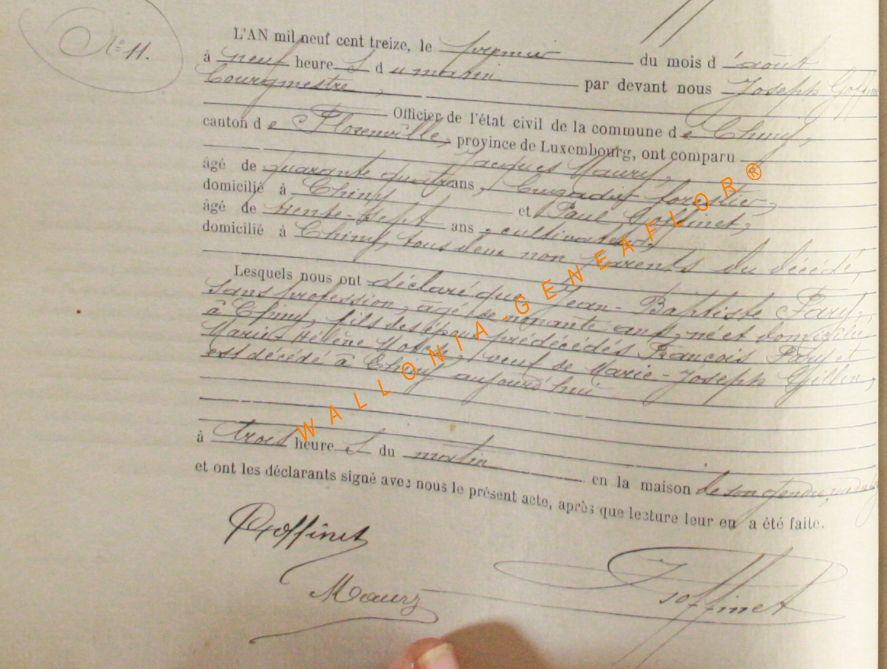 N° 11.
L'AN mil neuf cent treize, le premier du mois d'août
à neuf heures du matin par devant nous Joseph Goffinet
bourgmestre,
Officier de l'état civil de la commune de Chiny,
canton de Florenville, province de Luxembourg, ont comparu
Jacques Maury,
âgé de quarante quatre ans, brigadier forestier,
domicilié à Chiny et Paul Goffinet,
âgé de trente-sept ans, cultivateur,
domicilié à Chiny, tous deux non parents du décédé,
Lesquels nous ont déclaré que Jean-Baptiste Pary,
sans profession, âgé de nonante ans, né et domicilié
à Chiny, fils des époux prédécédés François Pary et
Marie Hélène veuf de Marie-Joseph Gillen,
est décédé à Chiny aujourd'hui
à trois heures du matin en la maison de son gendre,
et ont les déclarants signé avec nous le présent acte, après que lecture leur en a été faite.
PGoffinet
Maury
JGoffinet
WALLONIA-GENEAFLOR®